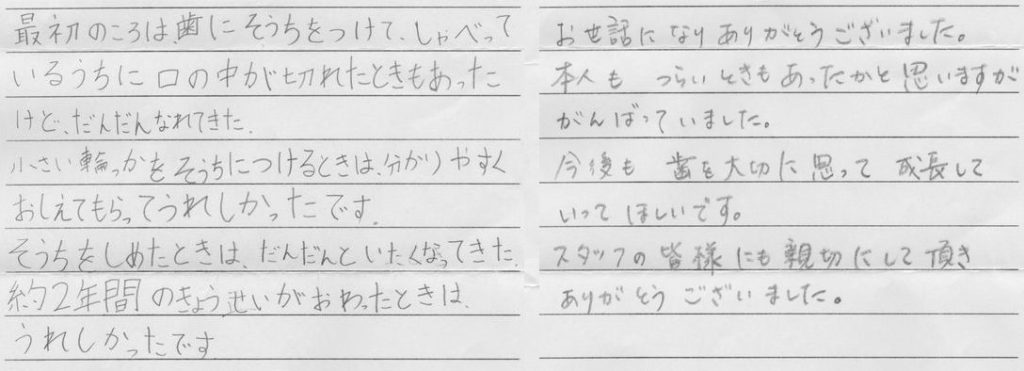 最初のころは、歯にそうちをつけて、しゃべって
いるうちに口の中が切れたときもあった
けど、だんだんなれてきた。
小さい輪っかをそうちにつけるときは、分かりやすく
おしえてもらってうれしかったです。
そうちをしめたときは、だんだんといたくなってきた。
約2年間のきょうせいがおわったときは、
うれしかったです
お世話になりありがとうございました。
本人も つらいときもあったかと思いますが
がんばっていました。
今後も 歯を大切に思って 成長して
いってほしいです。
スタッフの皆様にも親切にして頂き
ありがとうございました。